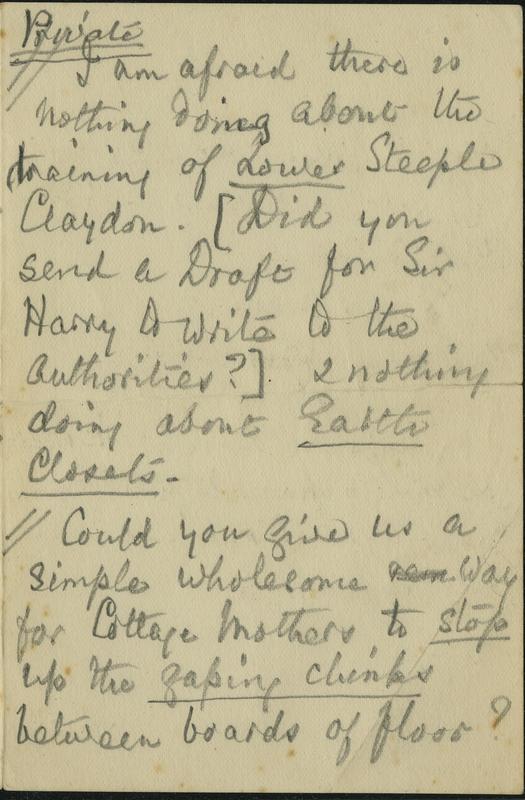 Private
// I am afraid there is
nothing doing about the
training of Lower Steeple
Claydon. [Did you
send a Draft for Sir
Harry to write to the
Authorities?] & nothing
doing about Earth
Closets.
// Could you give us a
simple wholesome way
for Cottage Mothers to stop
up the gaping chinks
between boards of floor?